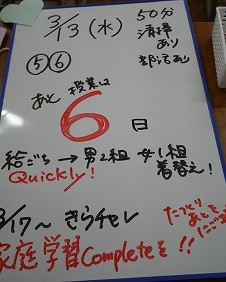 3/13(水)
50分
清掃あり
部活あり
⑤⑥
あと 授業は
6日
給ごち → 男2組 女1組
Quickly! 着替え!
3/17～ きらチャレ
家庭学習Completeを!!
たつとりあとをにごさず